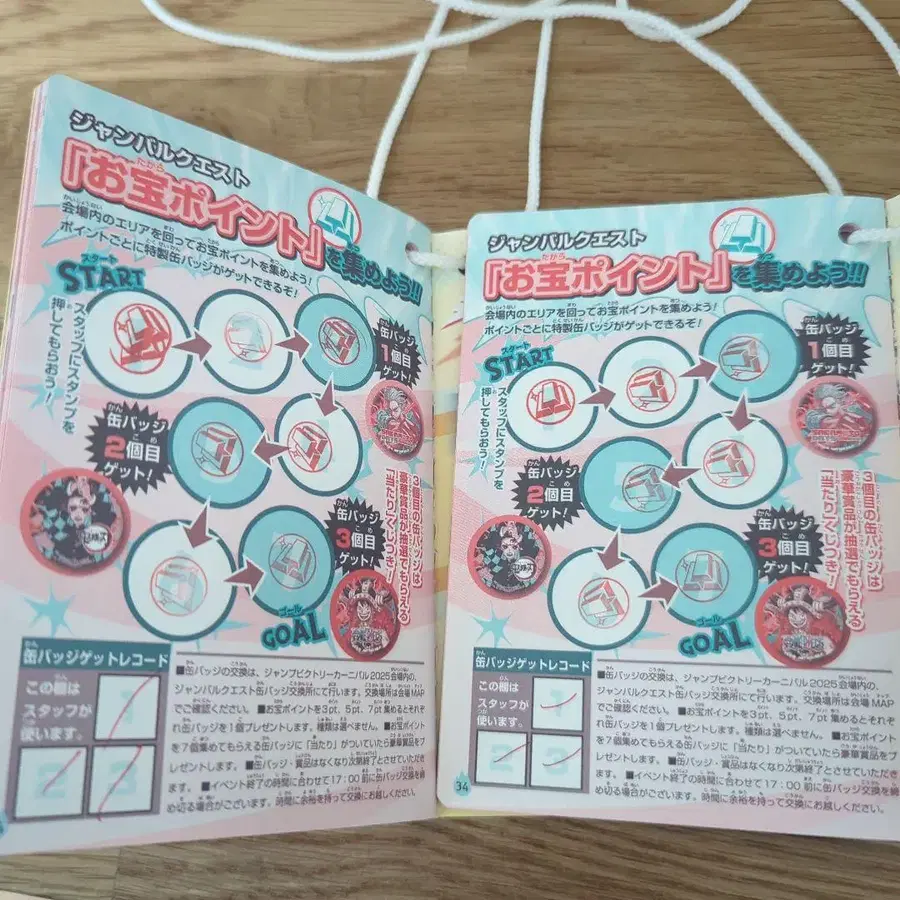 ジャンバルクエスト
「お宝ポイント」を集めよう!!
会場内のエリアを回ってお宝ポイントを集めよう!
ポイントごとに特製缶バッジがゲットできるぞ!
スタート
START
スタッフにスタンプを
押してもらおう!
缶バッジ
1個目
ゲット!
缶バッジ
2個目
ゲット!
缶バッジ
3個目
ゲット!
3個目の缶バッジは
豪華賞品が抽選でもらえる
「当たり」くじつき!
ゴール
GOAL
缶バッジゲットレコード
この欄は
スタッフが
使います。
1
2
3
■缶バッジの交換は、ジャンプビクトリーカーニバル2025会場内の、
ジャンバルクエスト缶バッジ交換所にて行います。交換場所は会場MAP
でご確認ください。■お宝ポイントを3pt、5pt、7pt集めるとそれぞ
れ缶バッジを1個プレゼントします。種類は選べません。■お宝ポイント
を7個集めてもらえる缶バッジに「当たり」がついていたら豪華賞品をプ
レゼントします。■缶バッジ・賞品はなくなり次第終了とさせていただき
ます。■イベント終了の時間に合わせて17:00前に缶バッジ交換を締
め切る場合がございます。時間に余裕を持って交換にお越しください。
ジャンバルクエスト
「お宝ポイント」を集めよう!!
会場内のエリアを回ってお宝ポイントを集めよう!
ポイントごとに特製缶バッジがゲットできるぞ!
スタート
START
スタッフにスタンプを
押してもらおう!
缶バッジ
1個目
ゲット!
缶バッジ
2個目
ゲット!
缶バッジ
3個目
ゲット!
3個目の缶バッジは
豪華賞品が抽選でもらえる
「当たり」くじつき!
ゴール
GOAL
缶バッジゲットレコード
この欄は
スタッフが
使います。
1
2
3
■缶バッジの交換は、ジャンプビクトリーカーニバル2025会場内の、
ジャンバルクエスト缶バッジ交換所にて行います。交換場所は会場MAP
でご確認ください。■お宝ポイントを3pt、5pt、7pt集めるとそれぞ
れ缶バッジを1個プレゼントします。種類は選べません。■お宝ポイント
を7個集めてもらえる缶バッジに「当たり」がついていたら豪華賞品をプ
レゼントします。■缶バッジ・賞品はなくなり次第終了とさせていただき
ます。■イベント終了の時間に合わせて17:00前に缶バッジ交換を締
め切る場合がございます。時間に余裕を持って交換にお越しください。
34